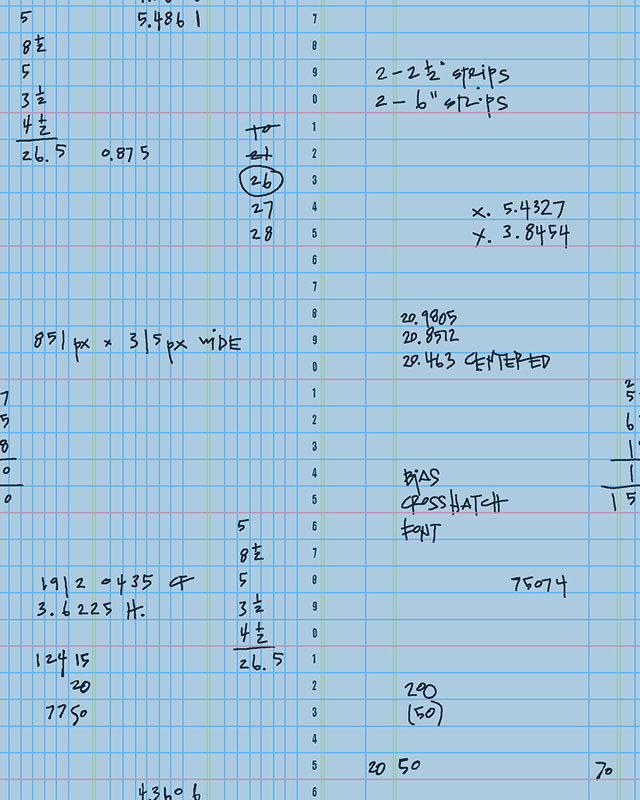 5 5.4861 7
8 1/2 8
5 9 2-2 1/2" STRIPS
3 1/2 0 2-6" STRIPS
4 1/2 1
26.5 0.875 21 2
26 3
27 4 X. 5.4327
28 5 X. 3.8454
6
7
8 20.9805
851px x 315px WIDE 9 20.8512
0 20.463 CENTERED
7 1 2
5 2 6
8 3 1
0 4 BIAS 1
0 5 CROSSHATCH 15
5 6 FONT
8 1/2 7
1912 0435 CF 5 8 75074
3.6225 H. 3 1/2 9
4 1/2 0
12415 26.5 1
20 2 200
7750 3 (50)
4
5 20 50 70
4.3606 6